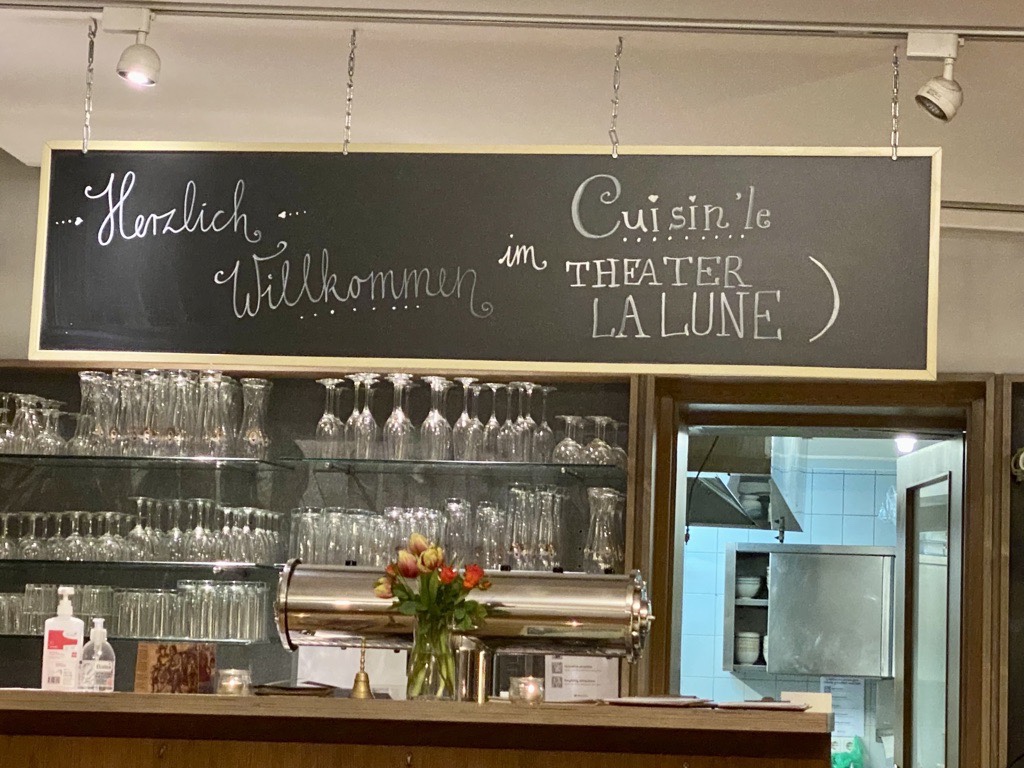 Herzlich
Willkommen
im
Cuisin'le
THEATER
LA LUNE )